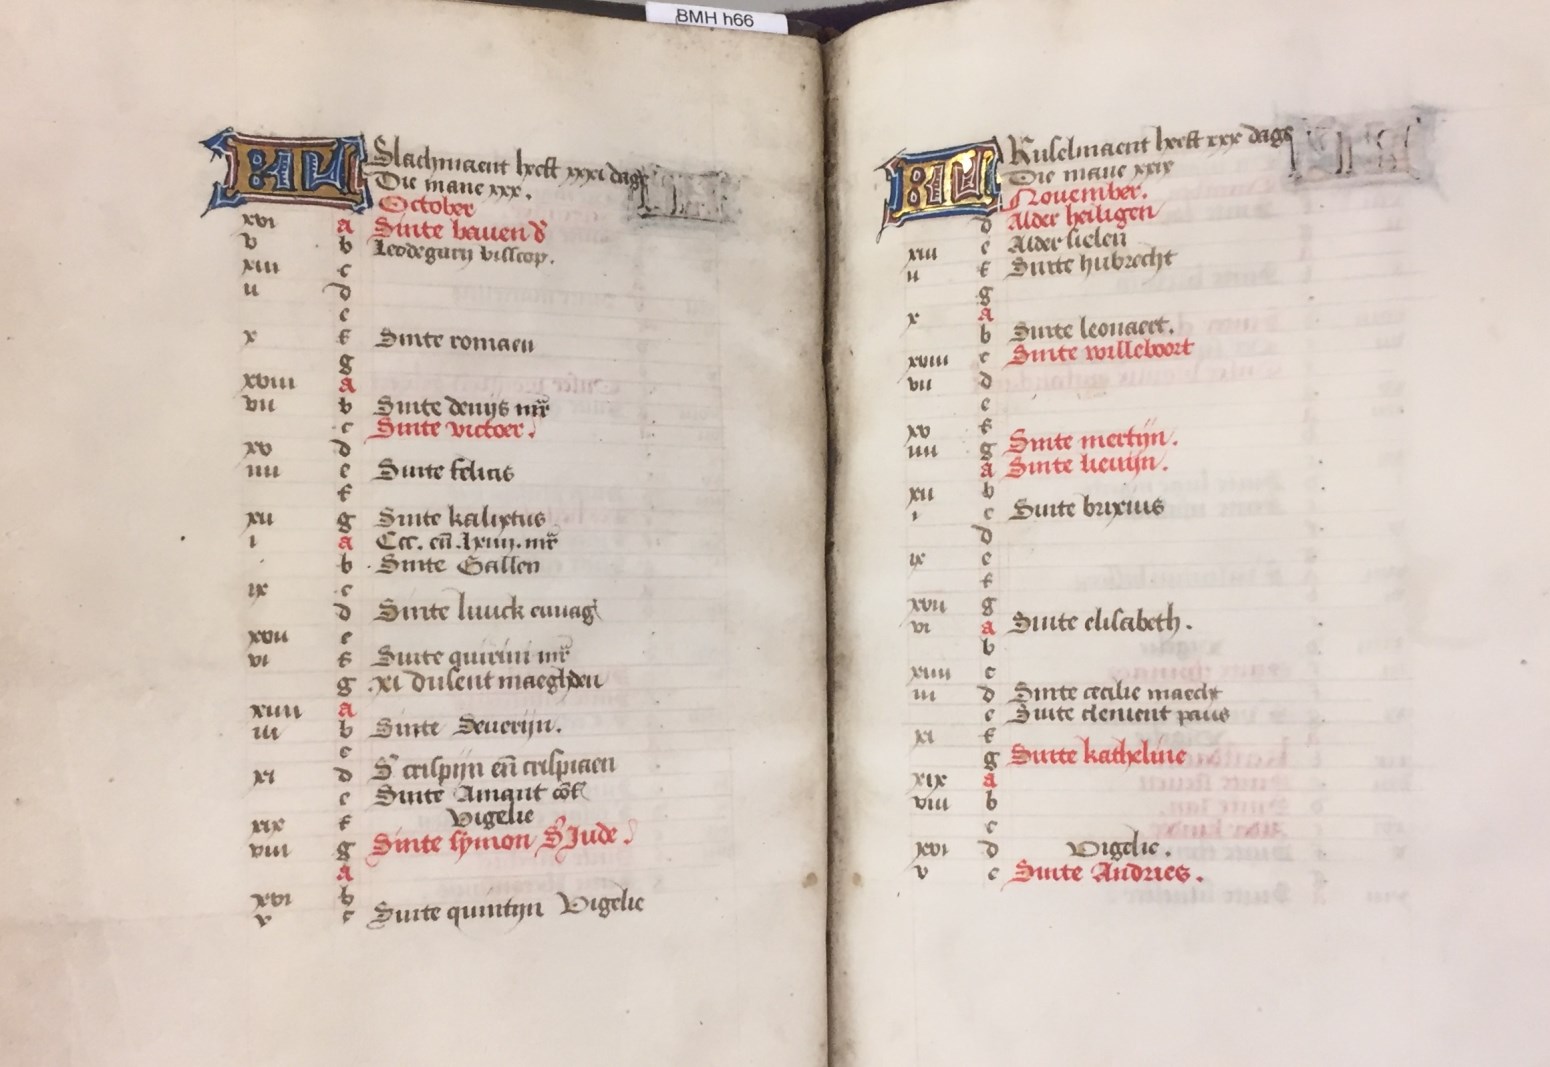 BMH h66
KL Slachmaent heeft xxxi dagh
Die mane xxx.
October
xvi a Sinte bauen
v b Leodegarij bisscop.
xiii c
ii d
e
x f Sinte romaen
g
xviii a
vii b Sinte denijs mr̄
c Sinte victoer.
xv d
iiii e Sinte felicis
f
xii g Sinte kalixtus
i a Ccc. eñ .lxiiii. mr̄
b Sinte Gallen
ix c
d Sinte luuck euuag
xvii e
vi f Sinte quirini mr̄
g .xi dusent maeghden
xiiii a
iii b Sinte Seuerijn.
c
xi d S crispijn eñ crispiaen
e Sinte Amant
xix f Vigelie
viii g Sinte symon S Jude.
a
xvi b
v c Sinte quintijn Vigelie
KL Ruselmaent heeft xxx dage
Die mane xxix
November.
d Alder heiligen
e Alder sielen
xiii f Sinte hubrecht
ii g
x a
b Sinte leonaert.
xviii c Sinte willeboort
vii d
e
xv f
iiii g Sinte mertijn.
a Sinte lieuijn.
xii b
i c Sinte brixius
d
ix e
f
xvii g
vi a Sinte elisabeth.
b
xiiii c
iii d Sinte cecilie maecht
e Sinte clement paus
xi f
g Sinte katheline
xix a
viii b
c
xvi d Vigelie.
v e Sinte Andries.